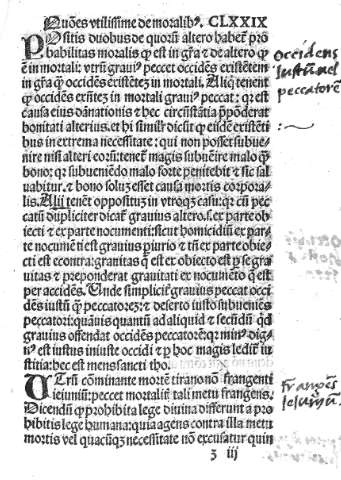 Quões vtilissime de moralibꝰ. CLXXIX
Positis duobus de quorū altero habet̄ pro
babilitas moralis ꝙ est in gr̄a ⁊ de altero ꝙ
ē in mortali: vtrū grauiꝰ peccet occidēs existētem
in gr̄a ꝙ̄ occidēs existētez in mortali. Aliq̇ tenent
ꝙ occidens exñtez in mortali grauiꝰ peccat: qꝛ est
causa eius dānationis ⁊ hec circūstātia p̄pōderat
bonitati alterius. et hi similr̄ dicūt ꝙ eiidē existēti
bus in extrema necessitate: qui non posset subue-
nire nisi alteri eorū: tenet̄ magis subuēire malo ꝙ̄
bono: qꝛ subueniēdo malo forte penitebit ⁊ sic sal
uabitur. ⁊ bono soluz esset causa mortis corpora-
lis. Alij tenēt oppositū in vtroqꝫ casu: qꝛ cū pec
catū dupliciter dicat̄ grauius altero. s. ex parte obie
cti ⁊ ex parte nocumenti: sicut homicidiū ex par-
te nocumēti est grauius piurio ⁊ tn̄ ex parte obie-
cti est econtra: grauitas q̄ est ex obiecto est p se gra
uitas ⁊ preponderat grauitati ex nocumēto q̄ est
per accidēs. Unde simplicit̄ grauiꝰ peccat occi
dēs iustū ꝙ̄ peccatorez: ⁊ deserto iusto subueniēs
peccatori: quāuis quantū ad aliquid ⁊ secūdū qd̄
grauius offendat occidēs peccatorē: qꝛ minꝰ dig-
nꝰ est iustus iniuste occidi ⁊ ꝑ hoc magis ledit̄ iu
stitia: hec est mens sancti tho.
Utrū cōminante mortē tirano nō frangenti
ieiuniū: peccet mortalit̄ tali metu frangens.
Dicendū ꝙ prohibita lege diuina differunt a pro
hibitis lege humana: quia agens contra illa metu
mortis vel quacūqꝫ necessitate nō excusatur quin
3 iij
occidens
Iustū uel
peccatorē
frangēs
Ieiuniū.